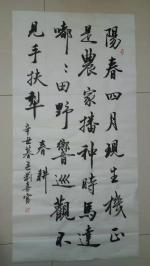 陽春四月現生機正
是農家播種時馬達
嘟嘟田野響巡觀不
見手扶犁
春耕
辛丑暮春